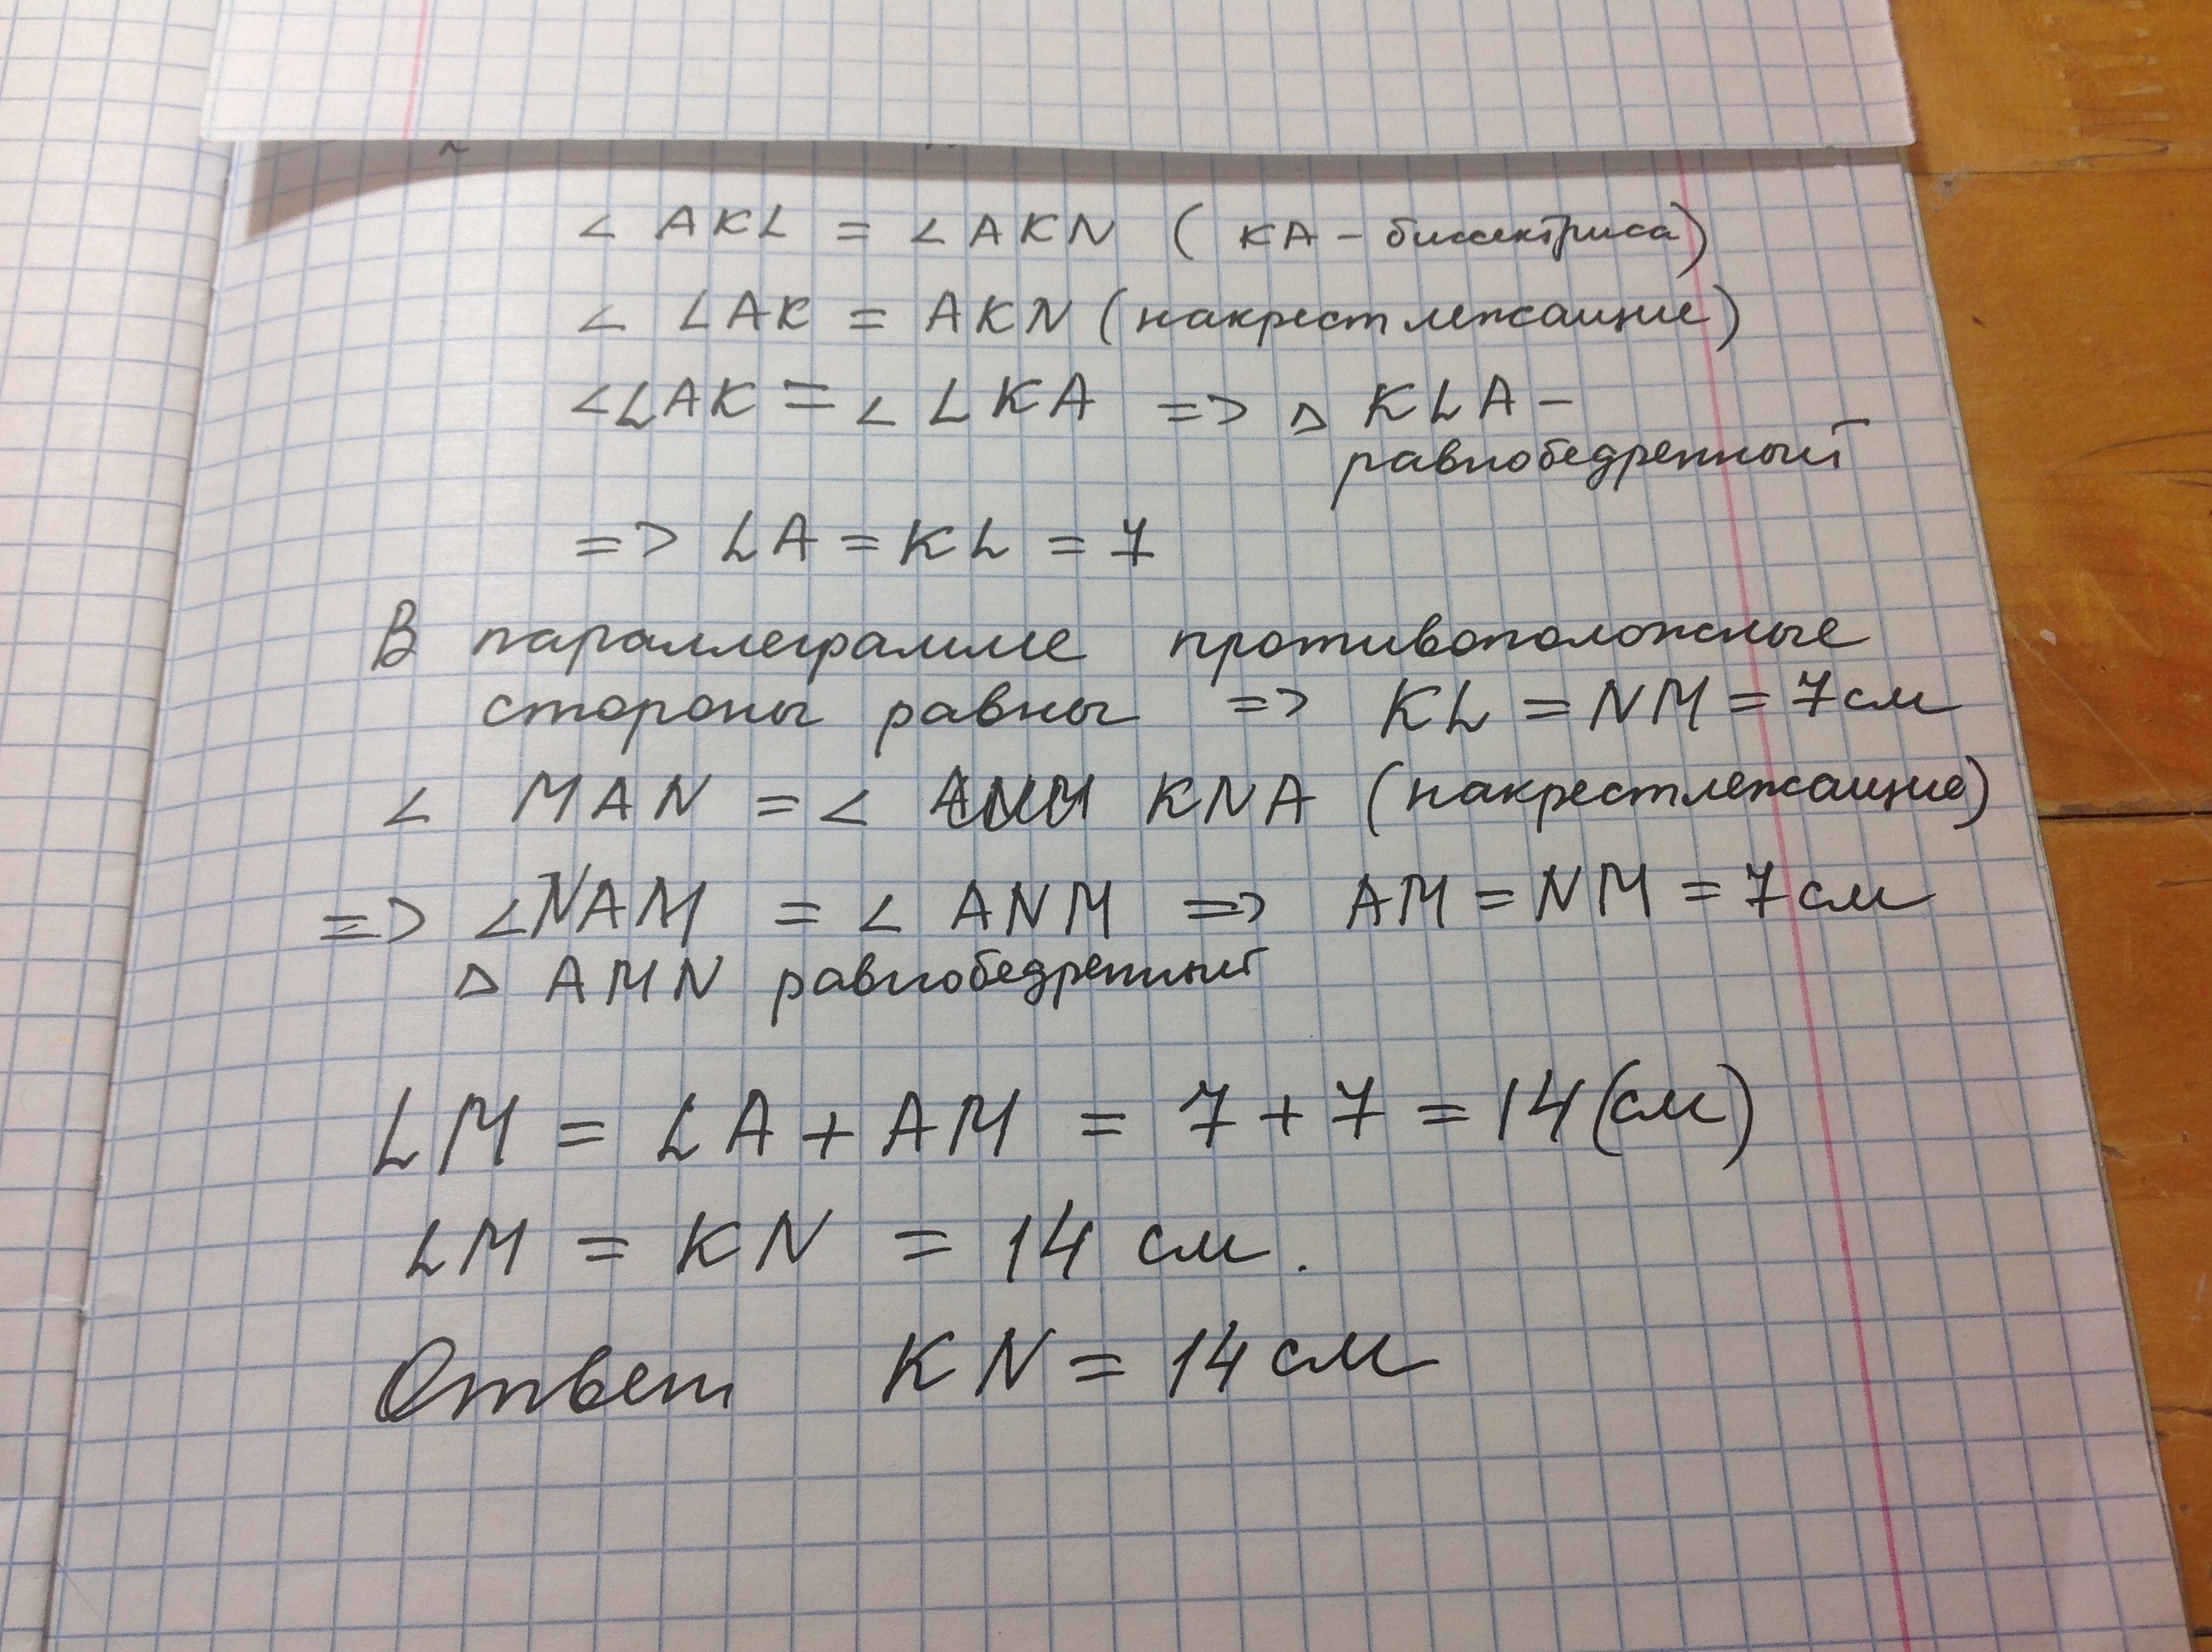 ∠ AKL = ∠ AKN ( KA - биссектриса)
∠ LAK = AKN (накрестлежащие)
∠LAK = ∠ LKA => △ KLA -
равнобедренный
=> LA = KL = 7
В параллеграмме противоположные
стороны равны => KL = NM = 7см
∠ MAN = ∠ KNA (накрестлежащие)
=> ∠NAM = ∠ ANM => AM = NM = 7см
△ AMN равнобедренный
LM = LA + AM = 7 + 7 = 14 (см)
LM = KN = 14 см.
Ответ KN = 14 см